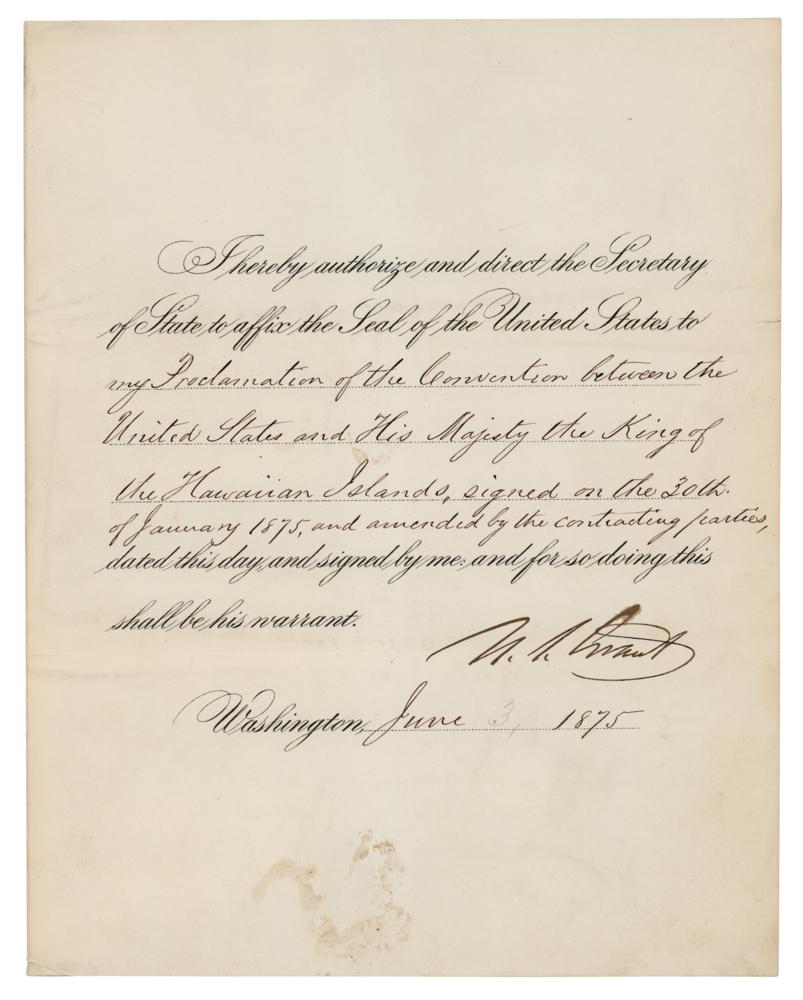 I hereby authorize and direct the Secretary
of State to affix the Seal of the United States to
my Proclamation of the Convention between the
United States and His Majesty the King of
the Hawaiian Islands, signed on the 30th.
of January 1875, and amended by the contracting parties,
dated this day, and signed by me: and for so doing this
shall be his warrant.
U. S. Grant
Washington, June 3, 1875